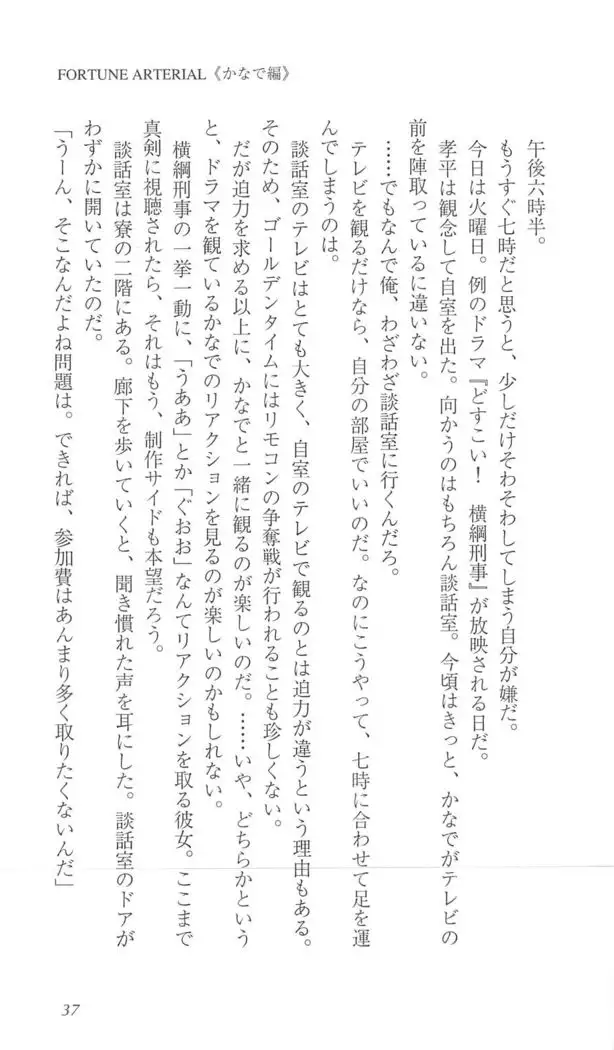 FORTUNE ARTERIAL《かなで編》
午後六時半。
もうすぐ七時だと思うと、少しだけそわそわしてしまう自分が嫌だ。
今日は火曜日。例のドラマ『どすこい！　横綱刑事』が放映される日だ。
孝平は観念して自室を出た。向かうのはもちろん談話室。今頃はきっと、かなでがテレビの
前を陣取っているに違いない。
……でもなんで俺、わざわざ談話室に行くんだろ。
テレビを観るだけなら、自分の部屋でいいのだ。なのにこうやって、七時に合わせて足を運
んでしまうのは。
談話室のテレビはとても大きく、自室のテレビで観るのとは迫力が違うという理由もある。
そのため、ゴールデンタイムにはリモコンの争奪戦が行われることも珍しくない。
だが迫力を求める以上に、かなでと一緒に観るのが楽しいのだ。……いや、どちらかという
と、ドラマを観ているかなでのリアクションを見るのが楽しいのかもしれない。
横綱刑事の一挙一動に、「うああ」とか「ぐおお」なんてリアクションを取る彼女。ここまで
真剣に視聴されたら、それはもう、制作サイドも本望だろう。
談話室は寮の二階にある。廊下を歩いていくと、聞き慣れた声を耳にした。談話室のドアが
わずかに開いていたのだ。
「うーん、そこなんだよね問題は。できれば、参加費はあんまり多く取りたくないんだ」
37